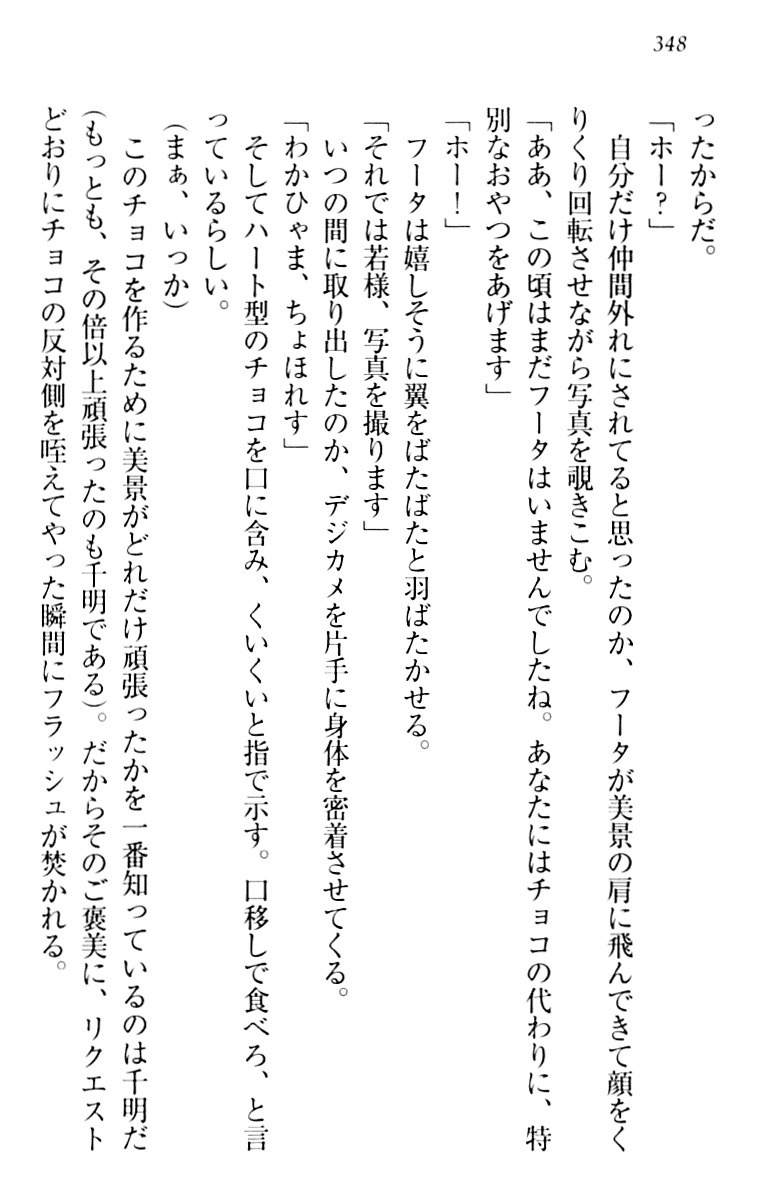 348
ったからだ。
「ホー？」
　自分だけ仲間外れにされてると思ったのか、フータが美景の肩に飛んできて顔をく
りくり回転させながら写真を覗きこむ。
「ああ、この頃はまだフータはいませんでしたね。あなたにはチョコの代わりに、特
別なおやつをあげます」
「ホー！」
　フータは嬉しそうに翼をばたばたと羽ばたかせる。
「それでは若様、写真を撮ります」
　いつの間に取り出したのか、デジカメを片手に身体を密着させてくる。
「わかひゃま、ちょほれす」
　そしてハート型のチョコを口に含み、くいくいと指で示す。口移しで食べろ、と言
っているらしい。
（まぁ、いっか）
　このチョコを作るために美景がどれだけ頑張ったかを一番知っているのは千明だ
（もっとも、その倍以上頑張ったのも千明である）。だからそのご褒美に、リクエスト
どおりにチョコの反対側を咥えてやった瞬間にフラッシュが焚かれる。